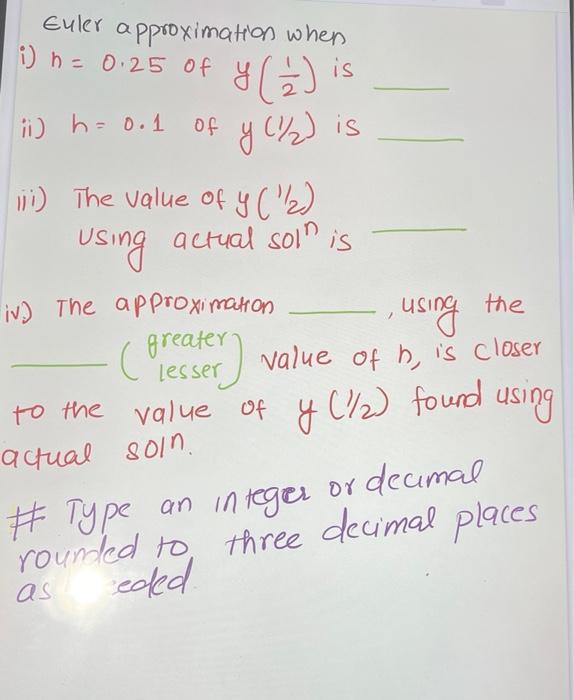 Euler approximation when
i) h = 0.25 of y(1/2) is ____
ii) h = 0.1 of y(1/2) is ____
iii) The value of y(1/2)
using actual solⁿ is ____
iv) The approximation ____, using the
____ (greater
lesser) value of h, is closer
to the value of y(1/2) found using
actual solⁿ.
# Type an integer or decimal
rounded to three decimal places
as